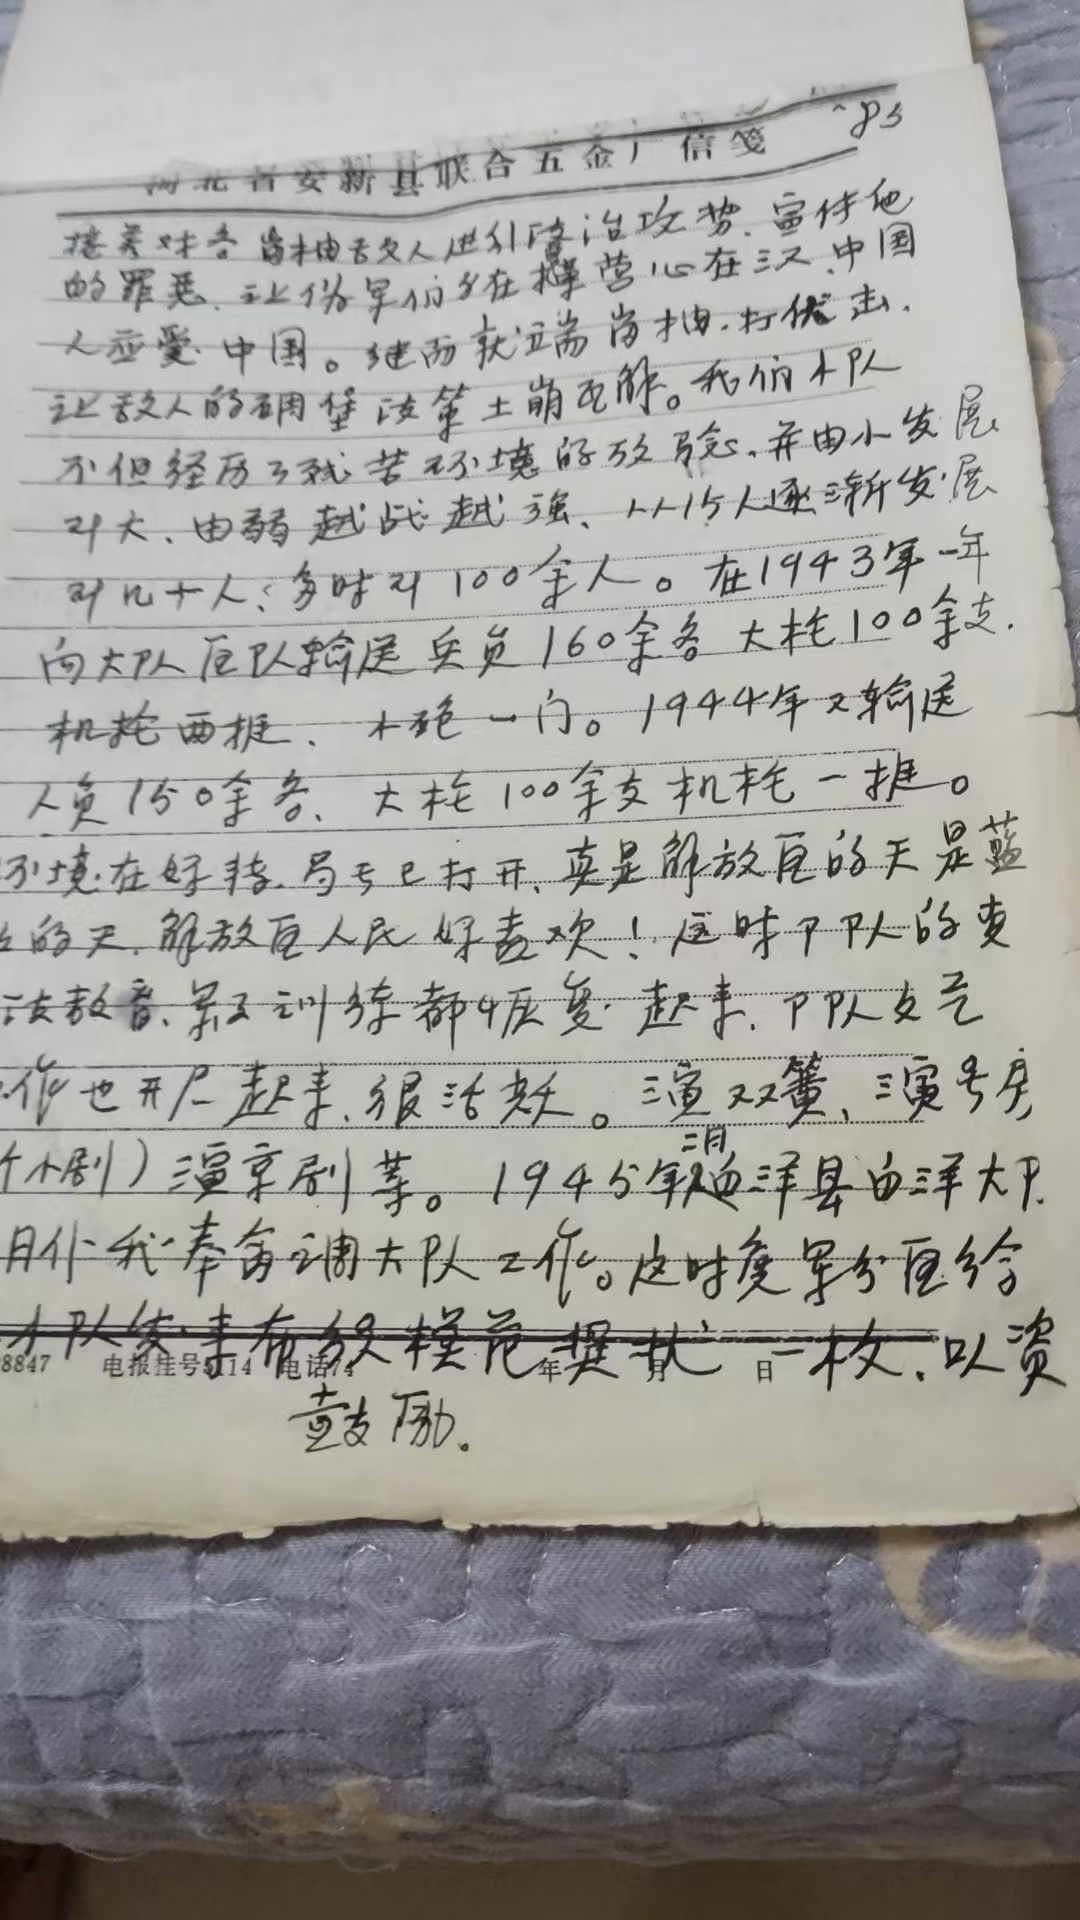 83
河北省安新县联合五金厂信笺
接着对各岗楼敌人进行政治攻势、宣传他
的罪恶、让伪军们身在曹营心在汉、中国
人应爱中国。继而就端岗楼、打伏击、
让敌人的碉堡政策土崩瓦解。我们小队
不但经历了艰苦环境的考验、并由小发展
到大、由弱越战越强、从15人逐渐发展
到几十人；多时到100余人。在1943年一年
向大队区队输送兵员160余名 大枪100余支、
机枪两挺、小炮一门。1944年又输送
人员150余名、大枪100余支机枪一挺。
环境在好转、局面已打开、真是解放区的天是蓝
的天、解放区人民好喜欢！这时小队的
政教育、军事训练都恢复起来、小队文艺
作也开展起来、很活跃。演双簧、演
小剧）演京剧等。1945年二月 洋县白洋大队
月份我奉命调大队工作。这时 军分区给
小队发来 模范奖状一枚、以资
鼓励。
8847 电报挂号5114 电话74 年 月 日